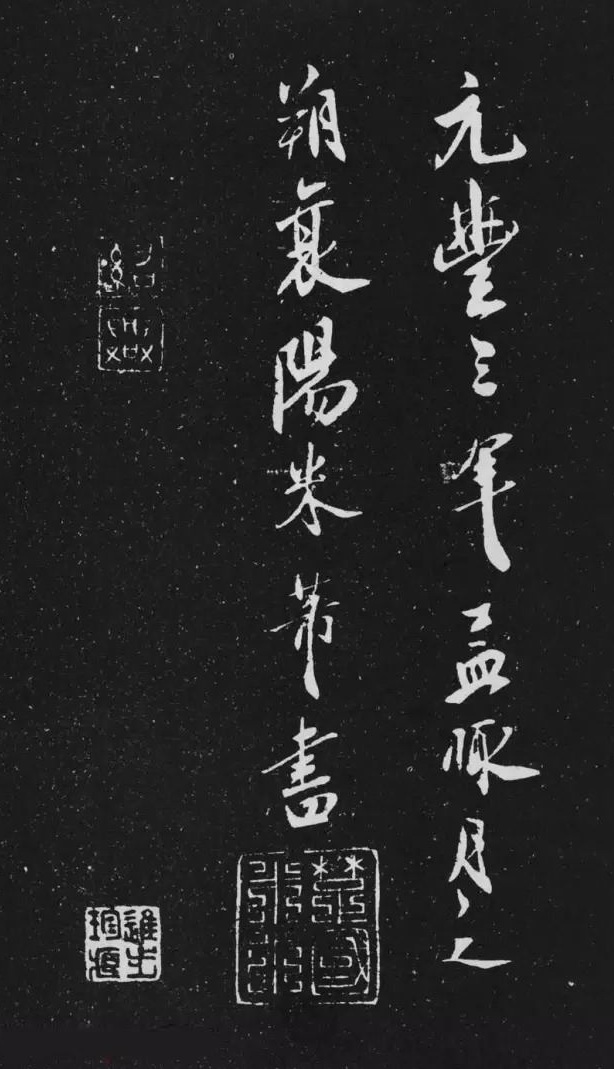 元豐三年孟陬月之
朔襄陽米芾書